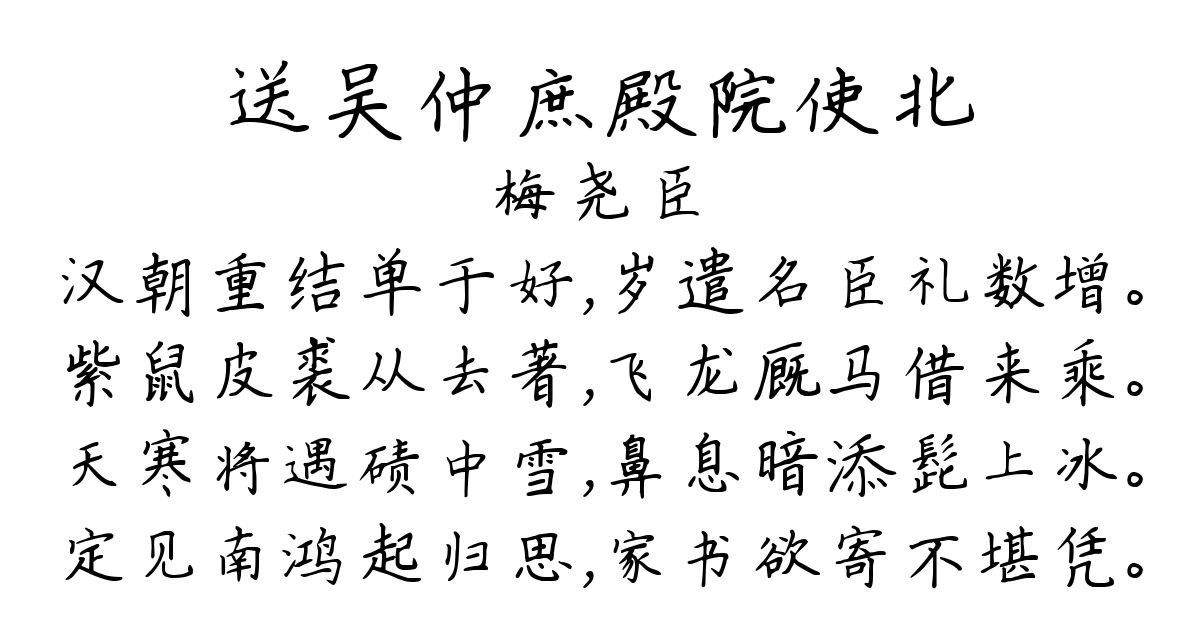 送吴仲庶殿院使北
梅尧臣
汉朝重结单于好,岁遣名臣礼数增。
紫鼠皮裘从去著,飞龙厩马借来乘。
天寒将遇碛中雪,鼻息暗添髭上冰。
定见南鸿起归思,家书欲寄不堪凭。